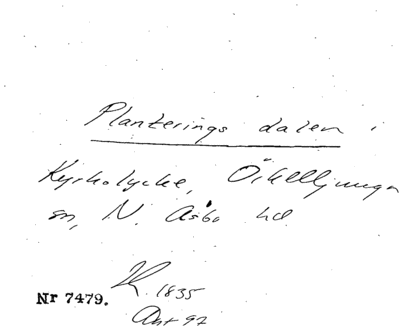 Planterings dalen i
Kyrkolycke, Örkelljunga
sn, N. Åsbo hd
1835
Nr 7479.
Ant 97